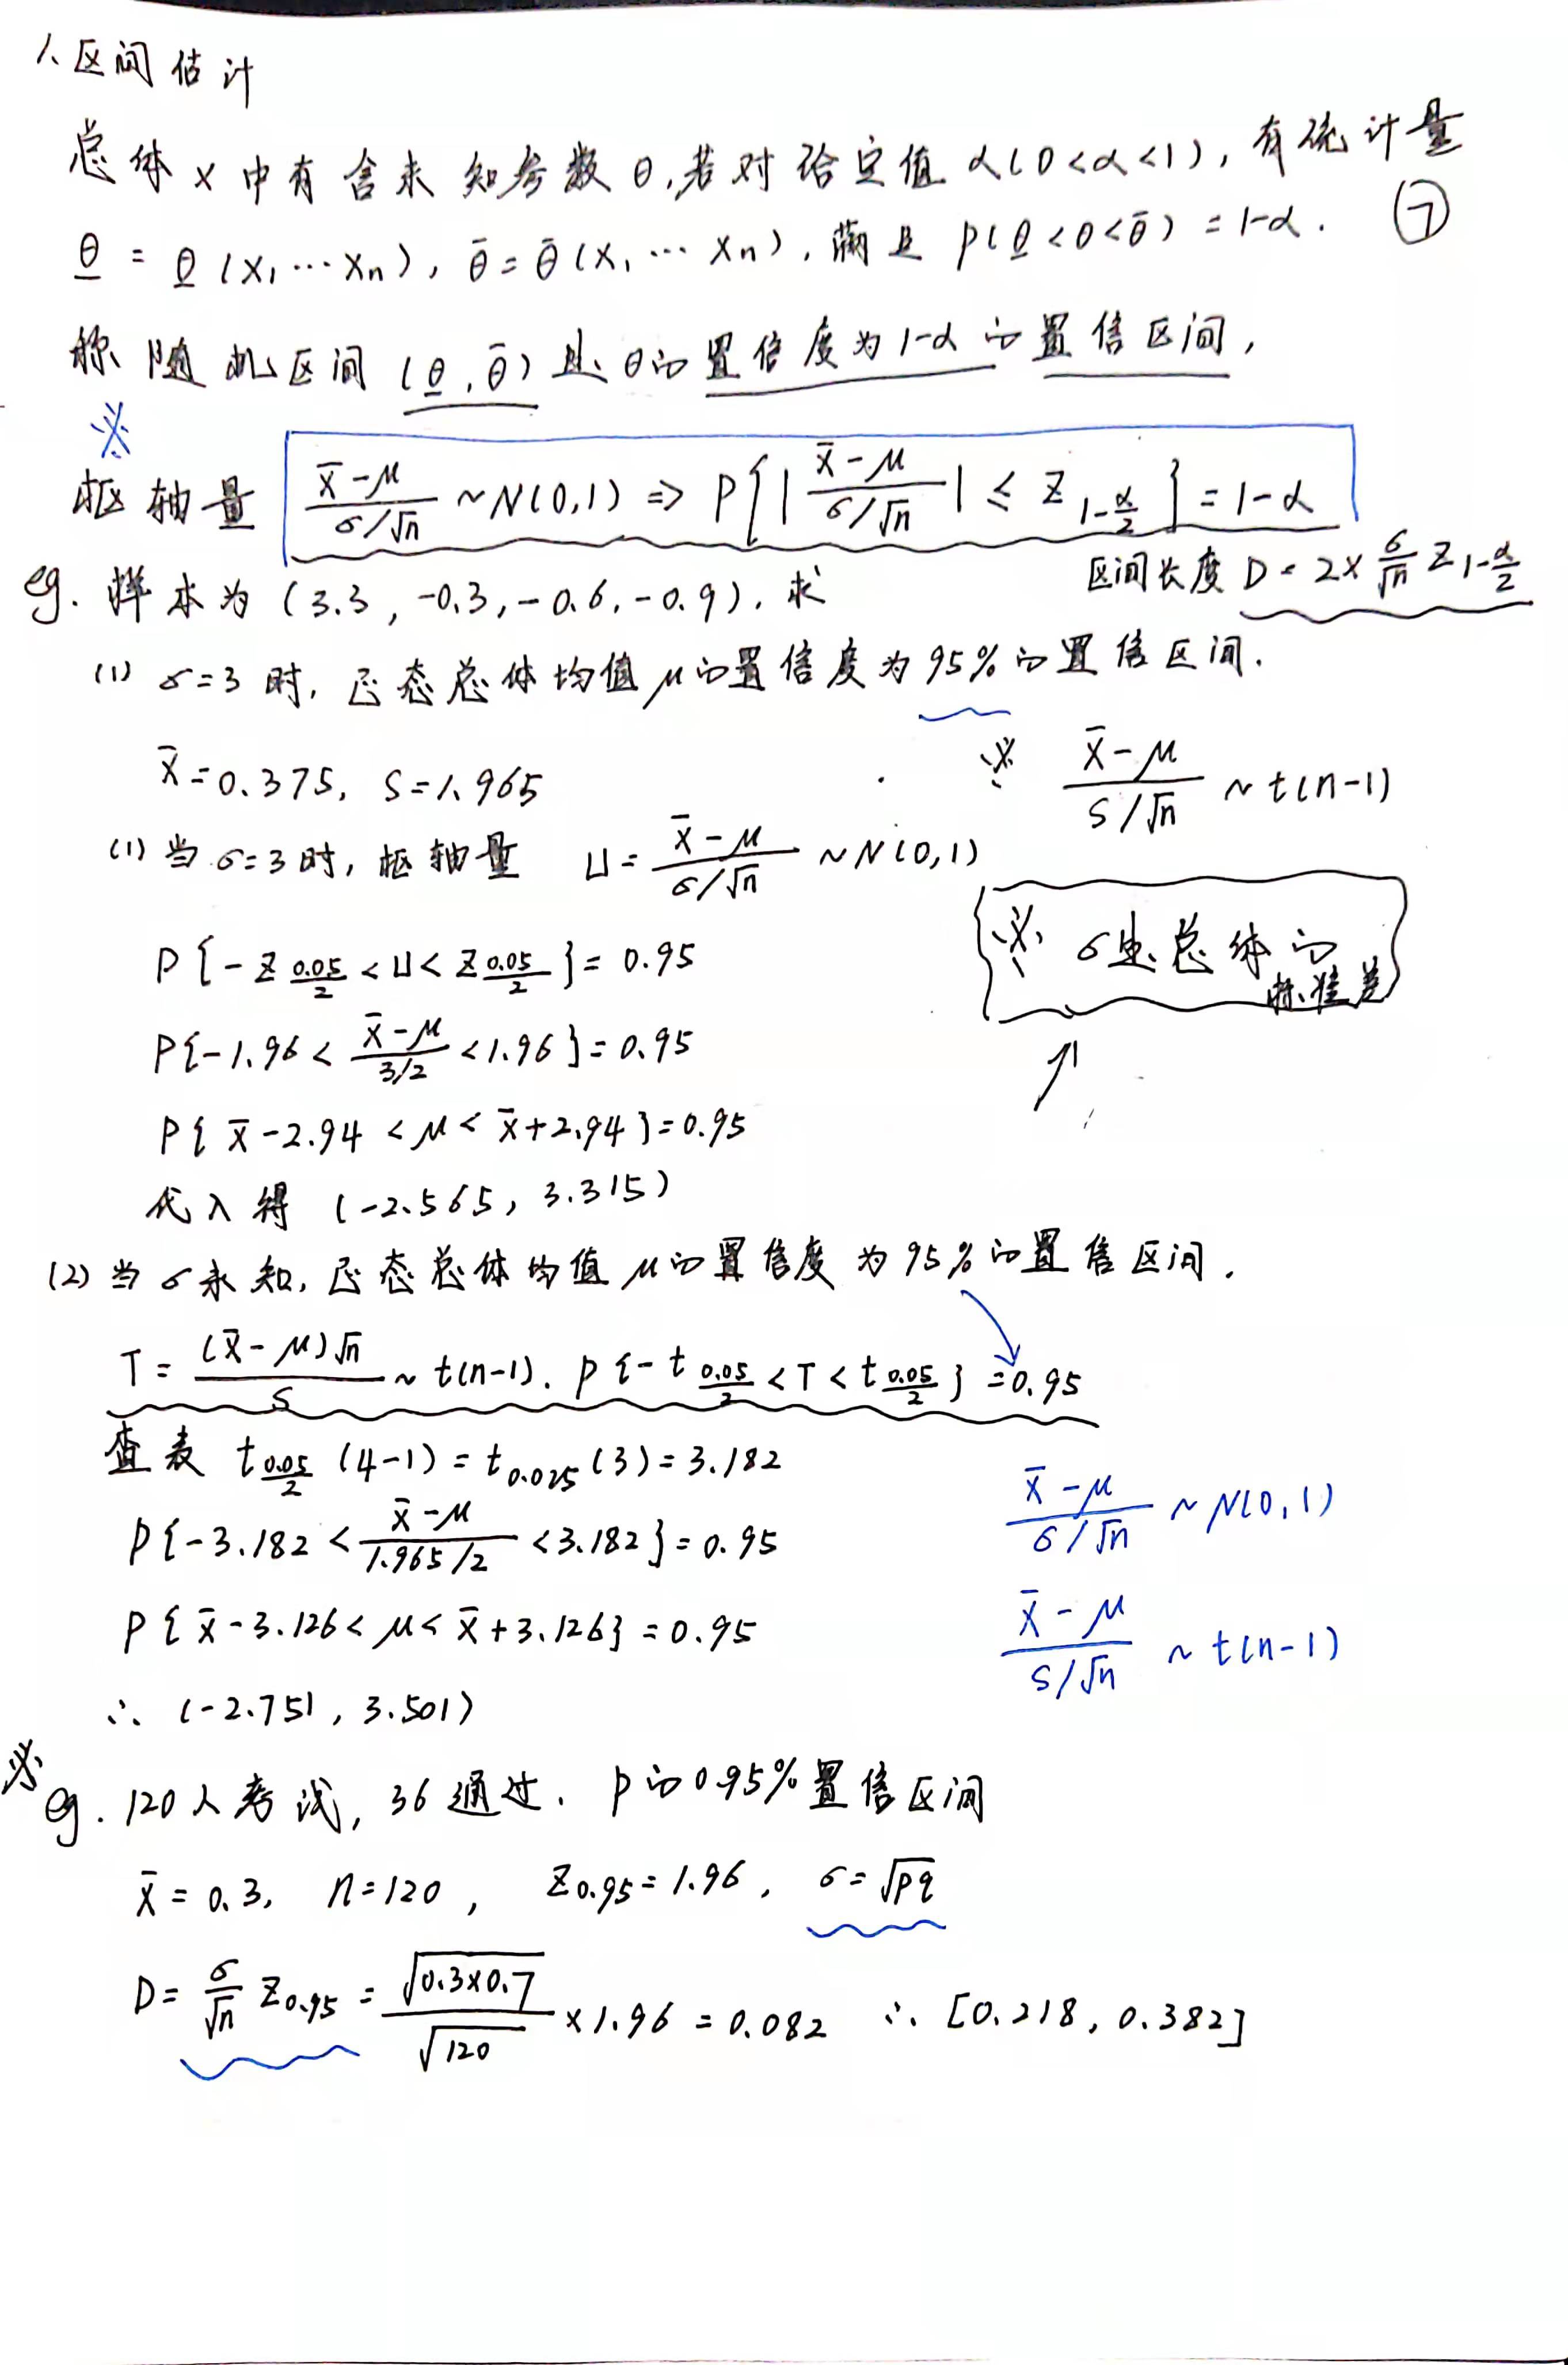 1、区间估计
总体X中有含未知参数θ,若对给定值α(0<α<1),有统计量
θ̲ = θ̲(X₁…Xn), θ̄=θ̄(X₁…Xn),满足 P(θ̲<θ<θ̄)=1-α. ⑦
称随机区间(θ̲,θ̄)是θ的置信度为1-α的置信区间,
※
枢轴量 (X̄-μ)/(σ/√n) ~N(0,1) ⇒ P{|(X̄-μ)/(σ/√n)| ≤ Z_{1-α/2}} = 1-α
区间长度 D=2×σ/√n Z_{1-α/2}
eg. 样本为(3.3,-0.3,-0.6,-0.9),求
(1) σ=3时,正态总体均值μ的置信度为95%的置信区间.
X̄=0.375, S=1.965
※ (X̄-μ)/(S/√n) ~ t(n-1)
(1)当σ=3时,枢轴量 U=(X̄-μ)/(σ/√n) ~N(0,1)
※ σ是总体的标准差
P{-Z_{0.05/2}<U<Z_{0.05/2}}=0.95
P{-1.96<(X̄-μ)/(3/2)<1.96}=0.95
P{X̄-2.94<μ<X̄+2.94}=0.95
代入得 (-2.565, 3.315)
(2)当σ未知,正态总体均值μ的置信度为95%的置信区间.
T=(X̄-μ)√n/S ~ t(n-1). P{-t_{0.05/2}<T<t_{0.05/2}}=0.95
查表 t_{0.05/2}(4-1)=t_{0.025}(3)=3.182
P{-3.182<(X̄-μ)/(1.965/2)<3.182}=0.95
(X̄-μ)/(σ/√n) ~N(0,1)
P{X̄-3.126<μ<X̄+3.126}=0.95
(X̄-μ)/(S/√n) ~ t(n-1)
∴ (-2.751, 3.501)
※ eg. 120人考试, 36通过. P的0.95%置信区间
X̄=0.3, n=120, Z_{0.95}=1.96, σ=√pq
D=σ/√n Z_{0.95}=√0.3×0.7/√120 ×1.96=0.082 ∴ [0.218, 0.382]